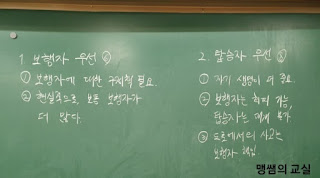 1. 보행자 우선
① 보행자에 대한 구체적 필요.
② 현실적으로, 보통 보행자가
더 많다.
2. 탑승자 우선
① 자기 생명이 더 중요.
② 보행자는 회피 가능,
탑승자는 대체 불가
③ 도로에서의 사고는
보행자 책임
맹쌤의 교실